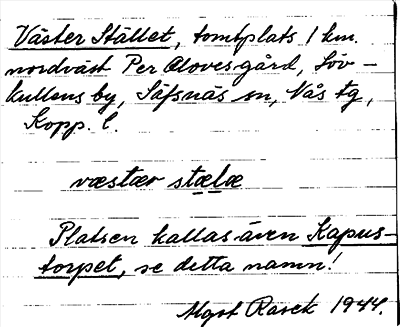 Väster Stället, tomtplats 1 km.
nordväst Per Olovesgård, Löv-
kullens by, Säfsnäs sn, Nås tg,
Kopp. l.
væstær stælæ
Platsen kallas även Kapus-
torpet, se detta namn!
Algot Rasck 1944.